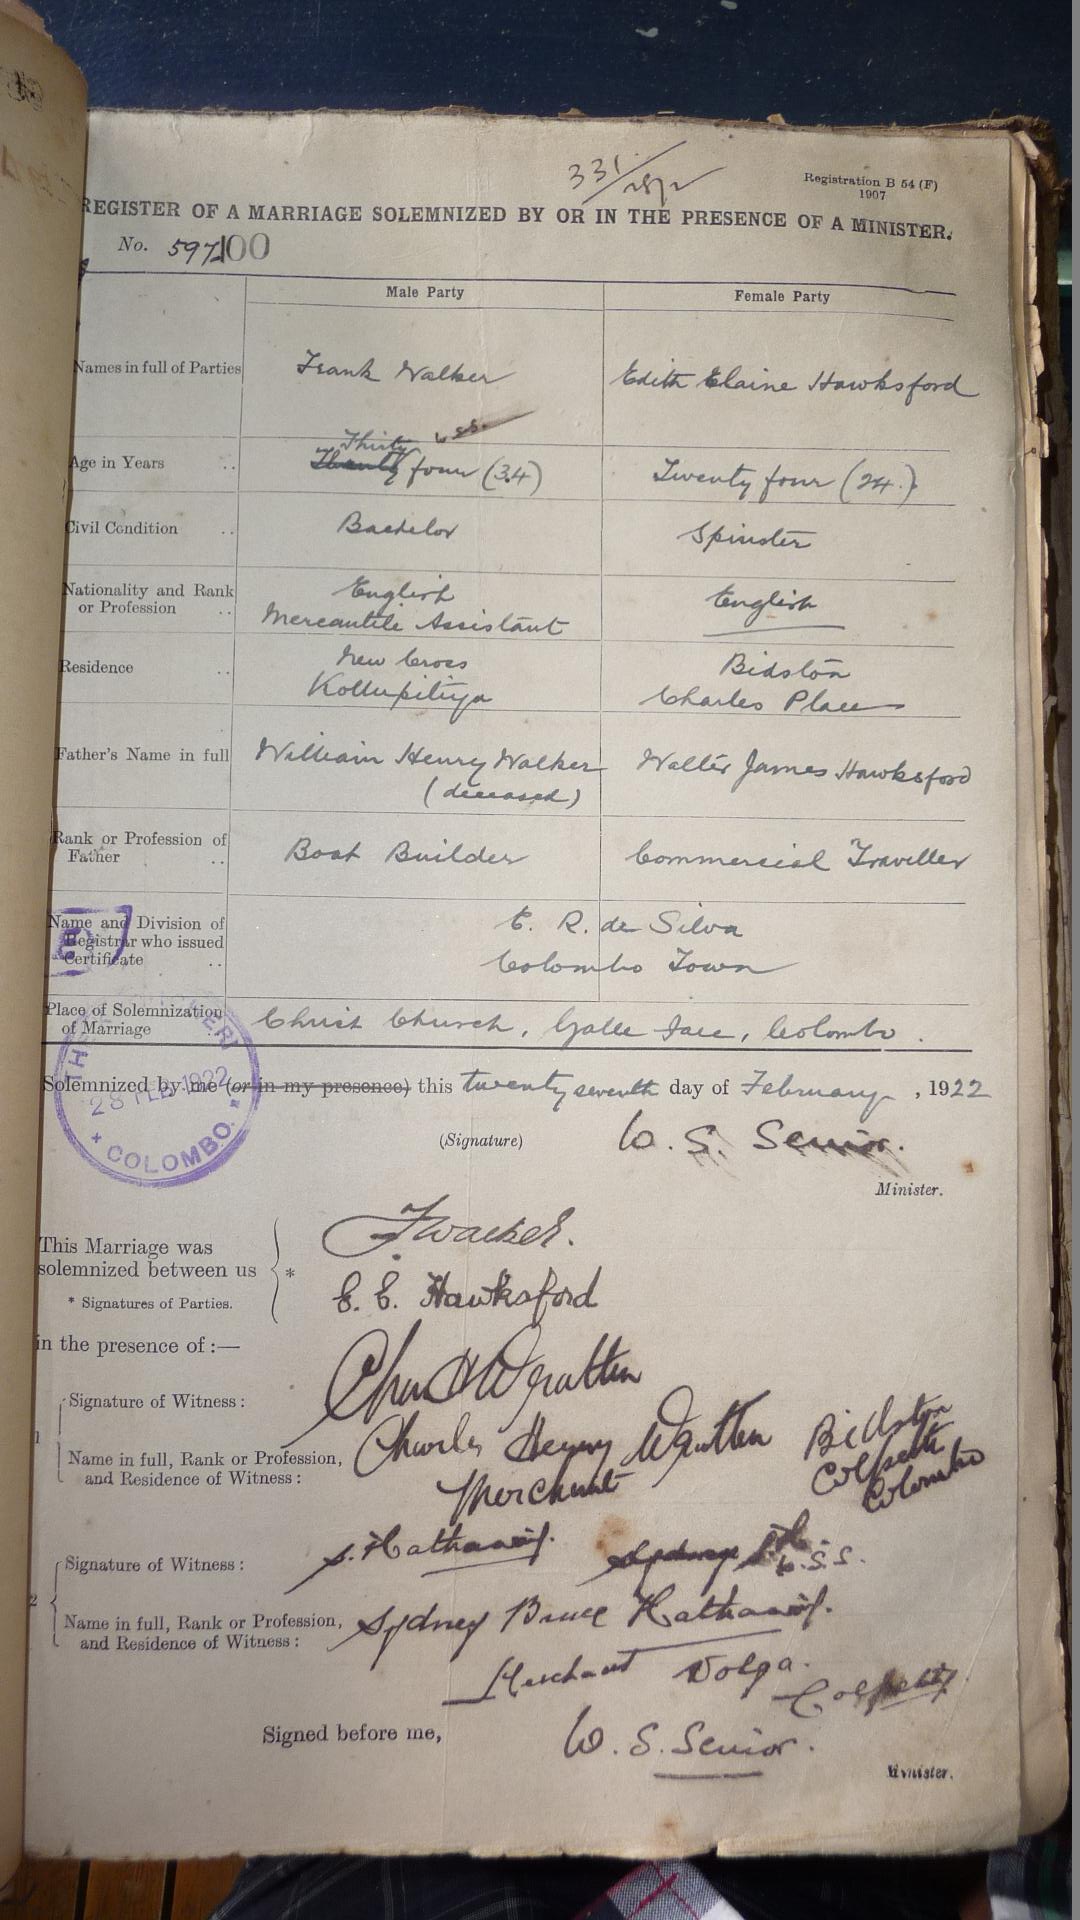 331/28/2
Registration B 54 (F)
1907
REGISTER OF A MARRIAGE SOLEMNIZED BY OR IN THE PRESENCE OF A MINISTER.
No. 597100
Male Party Female Party
Names in full of Parties Frank Walker Edith Elaine Hawksford
Thirty W.S.S.
Age in Years .. Twenty four (34) Twenty four (24.)
Civil Condition .. Bachelor Spinster
Nationality and Rank English English
or Profession .. Mercantile Assistant
Residence .. New Cross Bidston
Kollupitiya Charles Place
Father's Name in full William Henry Walker Walter James Hawksford
(deceased)
Rank or Profession of Boat Builder Commercial Traveller
Father ..
Name and Division of E. R. de Silva
Registrar who issued
Certificate .. Colombo Town
Place of Solemnization Christ Church, Galle Face, Colombo.
of Marriage
Solemnized by me (or in my presence) this twenty seventh day of February, 1922
28 FEB 1922
COLOMBO.
(Signature) W. S. Senior.
Minister.
F Walker.
This Marriage was
solemnized between us *
* Signatures of Parties. E. E. Hawksford
in the presence of :—
Signature of Witness: Chas H Wratten
Name in full, Rank or Profession, Charles Henry Wratten Bidston
and Residence of Witness: Merchant Colpetty
Colombo
Signature of Witness: S. Hathaway. Sydney W.S.S.
2 Name in full, Rank or Profession, Sydney Bruce Hathaway.
and Residence of Witness: Merchant Volga. Colpetty
Signed before me, W. S. Senior.
Minister.